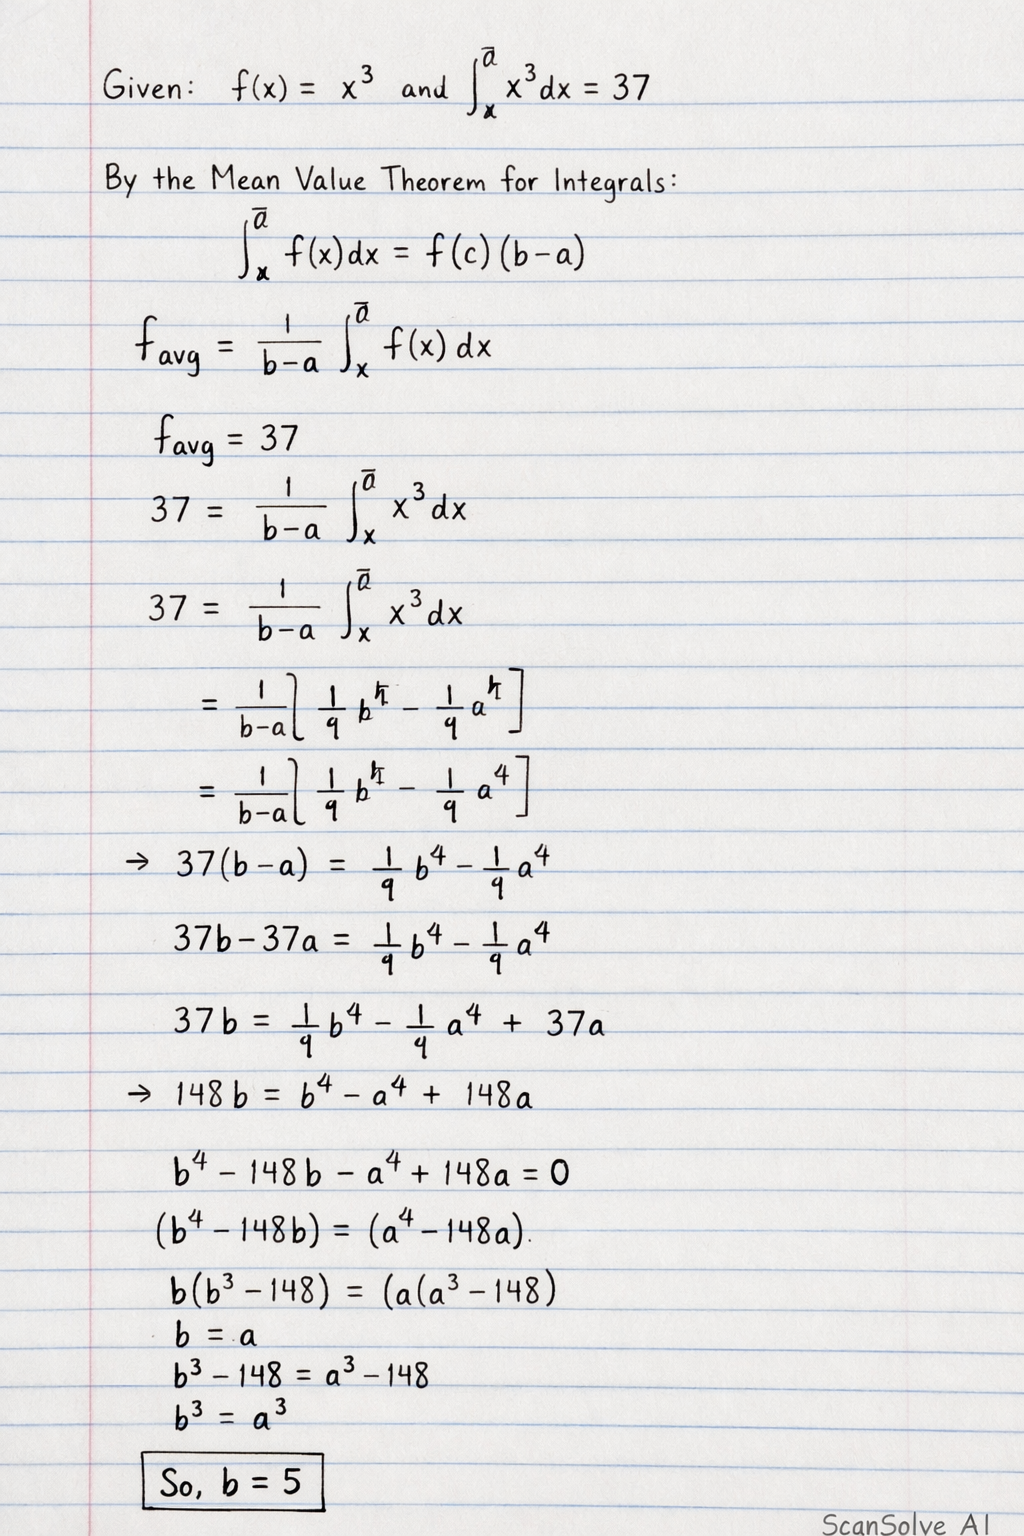 Given: f(x) = x³ and ∫ₓ^ā x³dx = 37
By the Mean Value Theorem for Integrals:
∫ₓ^ā f(x)dx = f(c)(b-a)
f_avg = 1/(b-a) ∫ₓ^ā f(x) dx
f_avg = 37
37 = 1/(b-a) ∫ₓ^ā x³dx
37 = 1/(b-a) ∫ₓ^ā x³dx
= 1/(b-a) [ 1/9 b - 1/9 a ]
= 1/(b-a) [ 1/9 b - 1/9 a⁴ ]
→ 37(b-a) = 1/9 b⁴ - 1/9 a⁴
37b-37a = 1/9 b⁴ - 1/9 a⁴
37b = 1/9 b⁴ - 1/9 a⁴ + 37a
→ 148b = b⁴ - a⁴ + 148a
b⁴ - 148b - a⁴ + 148a = 0
(b⁴ - 148b) = (a⁴ - 148a).
b(b³ - 148) = (a(a³ - 148)
b = a
b³ - 148 = a³ - 148
b³ = a³
So, b = 5
ScanSolve AI